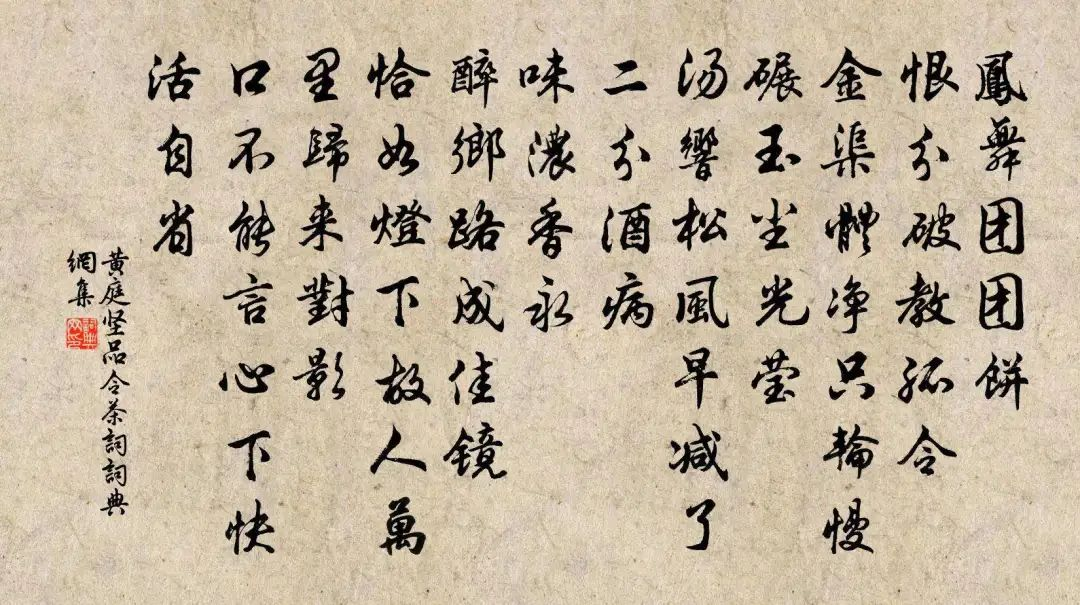 鳳舞团团餅
恨分破教孤令
金渠體净只輪慢
碾玉尘光莹
汤響松風早减了
二分酒病
味濃香永
醉鄉路成佳镜
恰如燈下故人萬
里歸来對影
口不能言心下快
活自省
黄庭坚品令茶詞詞典
網集